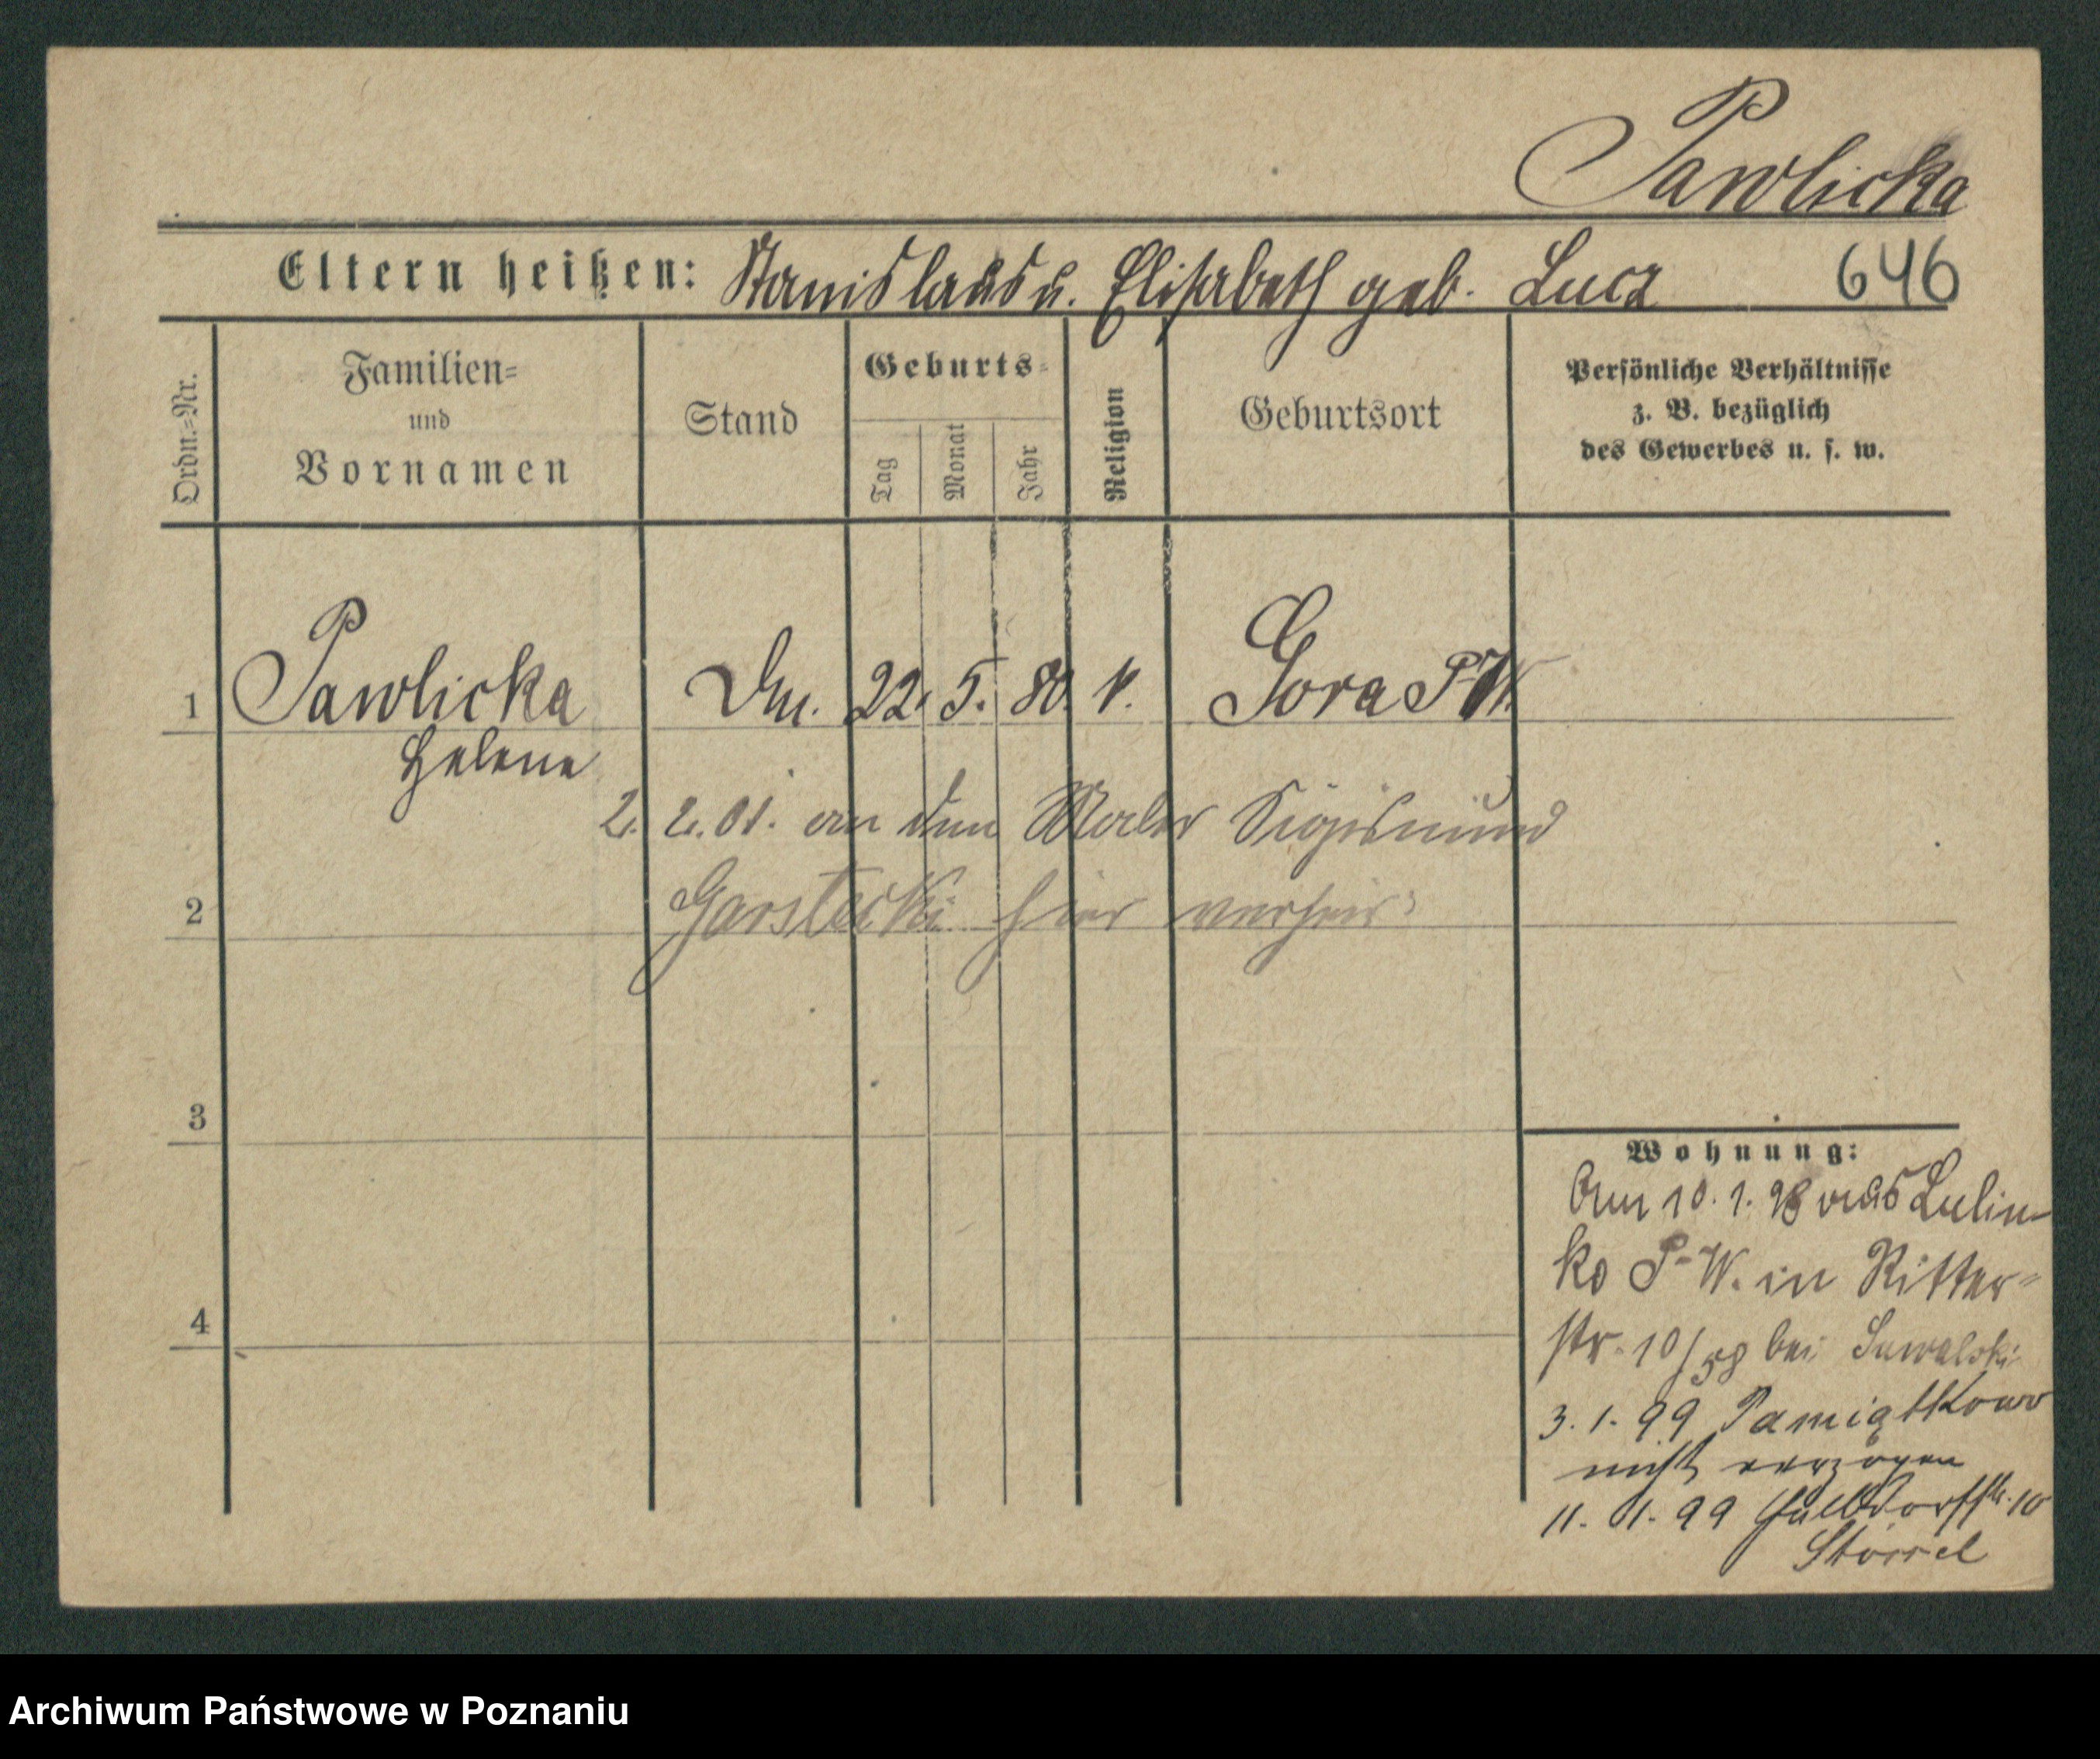 Pawlicka
Eltern heißen: Stanislaus u. Elisabeth geb. Lucz 646
Ordn.=Nr.
Familien=
und
Vornamen
Stand
Geburts=
Tag
Monat
Jahr
Religion
Geburtsort
Persönliche Verhältnisse
z. B. bezüglich
des Gewerbes u. s. w.
1 Pawlicka 22. 5. 80. k. Gora P-W.
Helene
2. 2. 01. an den Maler Sigismund
Garstecki hier verheir:
2
3
4
Wohnung:
Am 10. 1. 98 aus Lulin-
ko P-W. in Ritter=
str. 10/58 bei Suwalski
3. 1. 99 Pamiątkowo
nicht verzogen
11. 1. 99 10
Archiwum Państwowe w Poznaniu